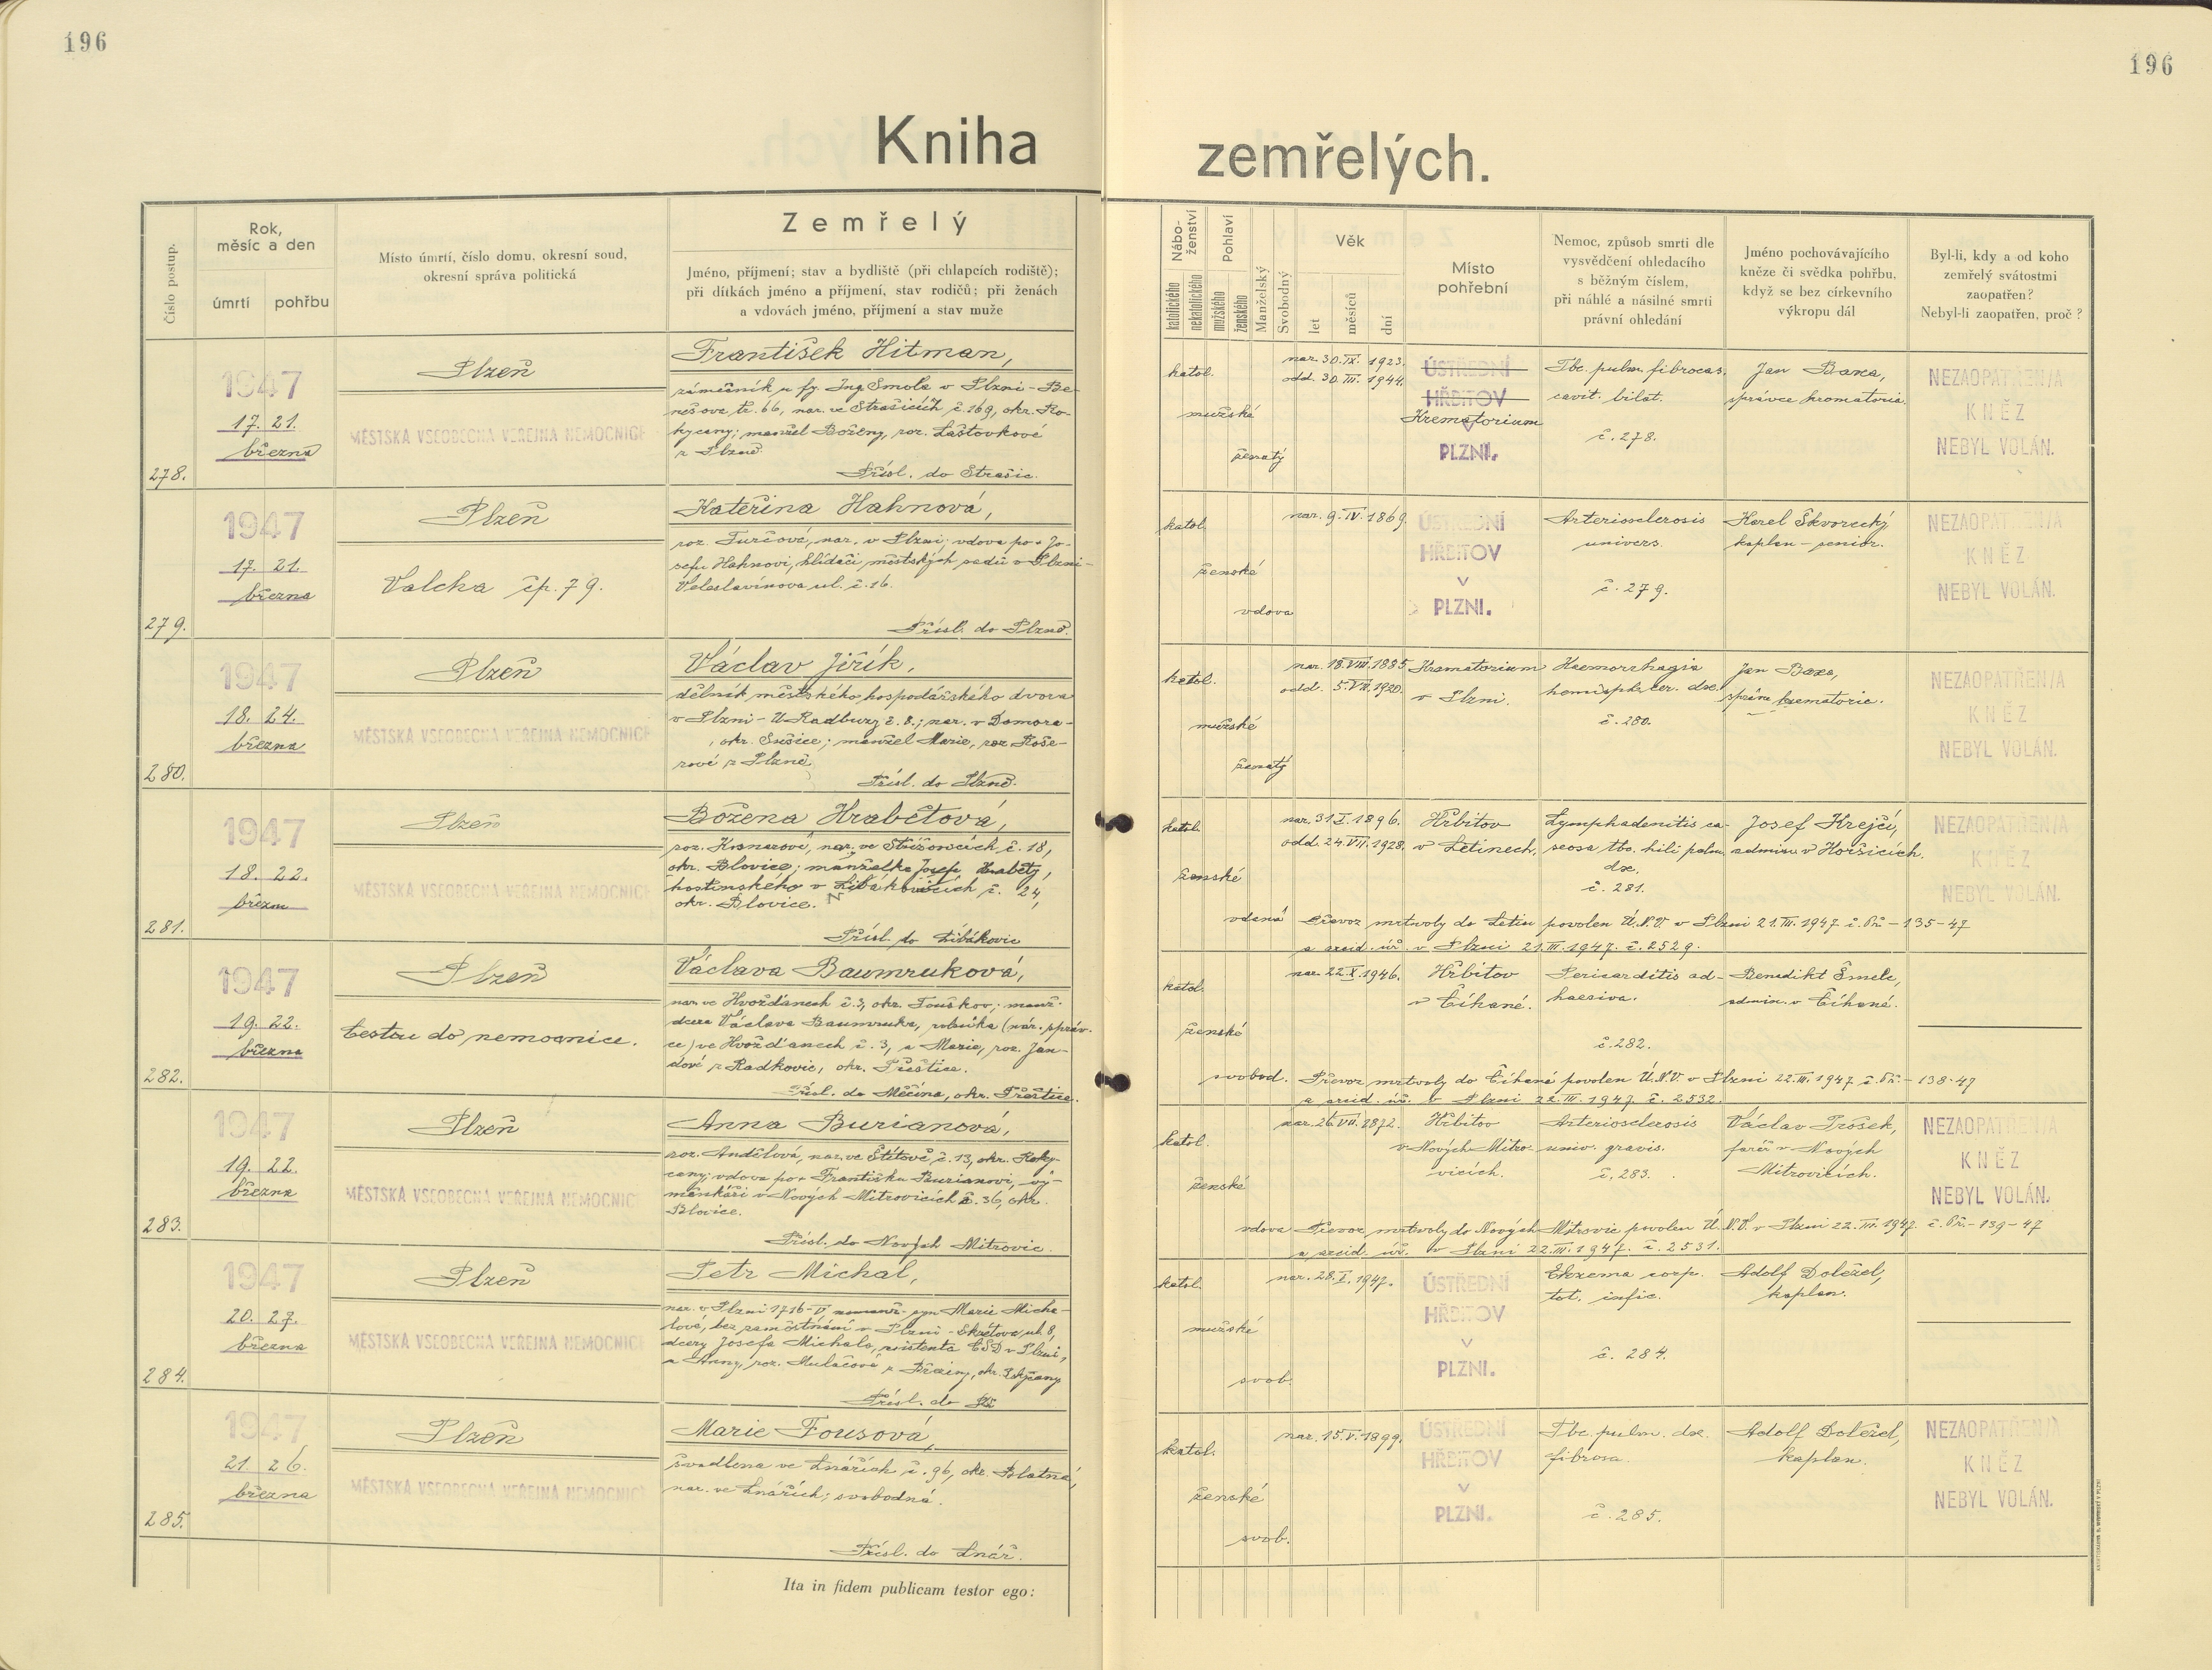 196
196
Kniha zemřelých.
Číslo postup.
Rok,
měsíc a den
úmrtí
pohřbu
Místo úmrtí, číslo domu, okresní soud,
okresní správa politická
Zemřelý
Jméno, příjmení; stav a bydliště (při chlapcích rodiště);
při dítkách jméno a příjmení, stav rodičů; při ženách
a vdovách jméno, příjmení a stav muže
Nábo-
ženství
katolického
nekatolického
Pohlaví
mužského
ženského
Manželský
Svobodný
Věk
let
měsíců
dní
Místo
pohřební
Nemoc, způsob smrti dle
vysvědčení ohledacího
s běžným číslem,
při náhlé a násilné smrti
právní ohledání
Jméno pochovávajícího
kněze či svědka pohřbu,
když se bez církevního
výkropu dál
Byl-li, kdy a od koho
zemřelý svátostmi
zaopatřen?
Nebyl-li zaopatřen, proč?
278.
1947
17. 21.
března
Plzeň
MĚSTSKÁ VŠEOBECNÁ VEŘEJNÁ NEMOCNICE
František Hitman,
zámečník u fy. Ing. Smola v Plzni - Be-
nešova tř. 66, nar. ve Strašicích č. 169, okr. Ro-
kycany; manžel Boženy, roz. Laštovkové
z Plzně.
Přísl. do Strašic.
katol.
mužské
ženatý
nar. 30. IX. 1923.
odd. 30. III. 1944.
ÚSTŘEDNÍ
HŘBITOV
Krematorium
V
PLZNI.
Tbc. pulm. fibrocas.
cavit. bilat.
č. 278.
Jan Baxa,
správce krematoria.
NEZAOPATŘEN/A
KNĚZ
NEBYL VOLÁN.
279.
1947
17. 21.
března
Plzeň
Valcha čp. 79.
Kateřina Hahnová,
roz. Turčové, nar. v Plzni; vdova po + Jo-
sefu Hahnovi, hlídači městských sadů v Plzni -
Veleslavínova ul. č. 16.
Přísl. do Plzně.
katol.
ženské
vdova
nar. 9. IV. 1869.
ÚSTŘEDNÍ
HŘBITOV
V
PLZNI.
Arteriosclerosis
univers.
č. 279.
Karel Škvorecký
kaplan - senior.
NEZAOPATŘEN/A
KNĚZ
NEBYL VOLÁN.
280.
1947
18. 24.
března
Plzeň
MĚSTSKÁ VŠEOBECNÁ VEŘEJNÁ NEMOCNICE
Václav Jiřík,
dělník městského hospodářského dvora
v Plzni - U Radbuzy č. 8.; nar. v Domora-
, okr. Sušice; manžel Marie, roz.
z Plzně
Přísl. do Plzně.
katol.
mužské
ženatý
nar. 18. VIII. 1885
odd. 5. VII. 1920.
Krematorium
v Plzni.
Haemorrhagia
hemisphr. cer. dx.
č. 280.
Jan Baxa,
správce krematoria.
NEZAOPATŘEN/A
KNĚZ
NEBYL VOLÁN.
281.
1947
18. 22.
března
Plzeň
MĚSTSKÁ VŠEOBECNÁ VEŘEJNÁ NEMOCNICE
Božena Hrabětová,
nar. ve Střížovicích č. 18,
okr. Blovice; manželka Josefa Hraběty,
hostinského v Libákovicích č. 24,
okr. Blovice.
Přísl. do Libákovic
katol.
ženské
vdaná
nar. 31. I. 1896.
odd. 24. VII. 1928.
Hřbitov
v Letinech.
Lymphadenitis ca-
seosa tbc. hili pulm.
dx.
č. 281.
Josef Krejčí,
admin. v Horšicích.
NEZAOPATŘEN/A
KNĚZ
NEBYL VOLÁN.
Převoz mrtvoly do Letin povolen Ú.N.V. v Plzni 21. III. 1947 č. Př. - 135-47
a arcid. úř. v Plzni 21. III. 1947. č. 2529.
282.
1947
19. 22.
března
Plzeň
Cestou do nemocnice.
Václava Baumruková,
nar. ve Hvožďanech č. 3, okr. Touškov; manž.
dcera Václava Baumruka, rolníka (nár. správ-
ce) ve Hvožďanech č. 3, a Marie, roz. Jan-
dové z Radkovic, okr. Přeštice.
Přísl. do Měčína, okr. Přeštice.
katol.
ženské
svobod.
nar. 22. X. 1946.
Hřbitov
v Číhané.
Pericarditis ad-
haesiva.
č. 282.
Benedikt Šmele,
admin. v Číhané.
Převoz mrtvoly do Číhané povolen Ú.N.V. v Plzni 22. III. 1947 č. Př. - 138-47
a arcid. úř. v Plzni 22. III. 1947 č. 2532.
283.
1947
19. 22.
března
Plzeň
MĚSTSKÁ VŠEOBECNÁ VEŘEJNÁ NEMOCNICE
Anna Burianová,
roz. Andělová, nar. ve Štítově č. 13, okr. Roky-
cany; vdova po + Františku Burianovi, vý-
měnkáři v Nových Mitrovicích č. 36, okr.
Blovice.
Přísl. do Nových Mitrovic.
katol.
ženské
vdova
nar. 26. VII. 1872.
Hřbitov
v Nových Mitro-
vicích.
Arteriosclerosis
univ. gravis.
č. 283.
Václav Trošek,
farář v Nových
Mitrovicích.
NEZAOPATŘEN/A
KNĚZ
NEBYL VOLÁN.
Převoz mrtvoly do Nových Mitrovic povolen Ú.N.V. v Plzni 22. III. 1947. č. Př. - 139-47
a arcid. úř. v Plzni 22. III. 1947. č. 2531.
284.
1947
20. 27.
března
Plzeň
MĚSTSKÁ VŠEOBECNÁ VEŘEJNÁ NEMOCNICE
Petr Michal,
nar. v Plzni 1716-V nemanž. syn Marie Micha-
lové, bez zaměstnání v Plzni - Skrétova ul. 8,
dcery Josefa Michala, asistenta ČSD v Plzni,
a Anny, roz. Mulačové z Březiny, okr. Rokycany
Přísl. do
katol.
mužské
svob.
nar. 28. I. 1947.
ÚSTŘEDNÍ
HŘBITOV
V
PLZNI.
Ekzema corp.
tot. infic.
č. 284.
Adolf Doležel,
kaplan.
285.
1947
21. 26.
března
Plzeň
MĚSTSKÁ VŠEOBECNÁ VEŘEJNÁ NEMOCNICE
Marie Fousová,
švadlena ve Lnářích č. 96, okr. Blatná,
nar. ve Lnářích; svobodná.
Přísl. do Lnář.
katol.
ženské
svob.
nar. 15. V. 1899.
ÚSTŘEDNÍ
HŘBITOV
V
PLZNI.
Tbc. pulm. dx.
fibrosa.
č. 285.
Adolf Doležel,
kaplan.
NEZAOPATŘEN/A
KNĚZ
NEBYL VOLÁN.
Ita in fidem publicam testor ego: